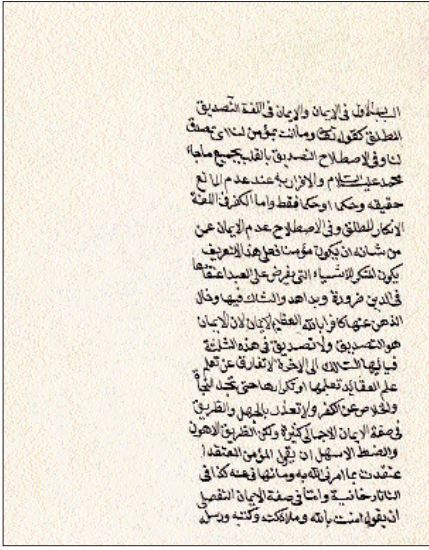 الباب الاول فى الايمان والايمان فى اللغة التصديق
المطلق كقوله تعالى وما انت بمؤمن لنا اى بمصدق
لنا وفى الاصطلاح التصديق بالقلب بجميع ما جاء
محمد عليه السلام والاقرار به عند عدم المانع
حقيقه وحكما او حكما فقط واما الكفر فى اللغة
الانكار المطلق وفى الاصطلاح عدم الايمان عن
من شانه ان يكون مؤمنا فعلى هذا التعريف
يكون المنكر للاشياء التى يفرض على العبد اعتقادها
فى الدين ضرورة وبداهة والشاك فيها وخال
الذهن عنها كافرا بالله العظيم لان الايمان
هو التصديق ولا تصديق فى هذه الثلثة
فيا ايها السالك الى الاخرة لا تفارق عن تعلم
علم العقايد تعلمها او تكرارها حتى تجد النجاة
والخلاص عن الكفر ولا تعذر بالجهل والطريق
فى صفة الايمان الاجمالى كثيرة ولكن الطريق الاهون
والضبط الاسهل ان يقول المؤمن المعتقد
اعتقدت بما امرنى الله به وما نهانى عنه كذا فى
التاتارخانية واما فى صفة الايمان التفصيلى
ان يقول امنت بالله وملائكته وكتبه ورسله